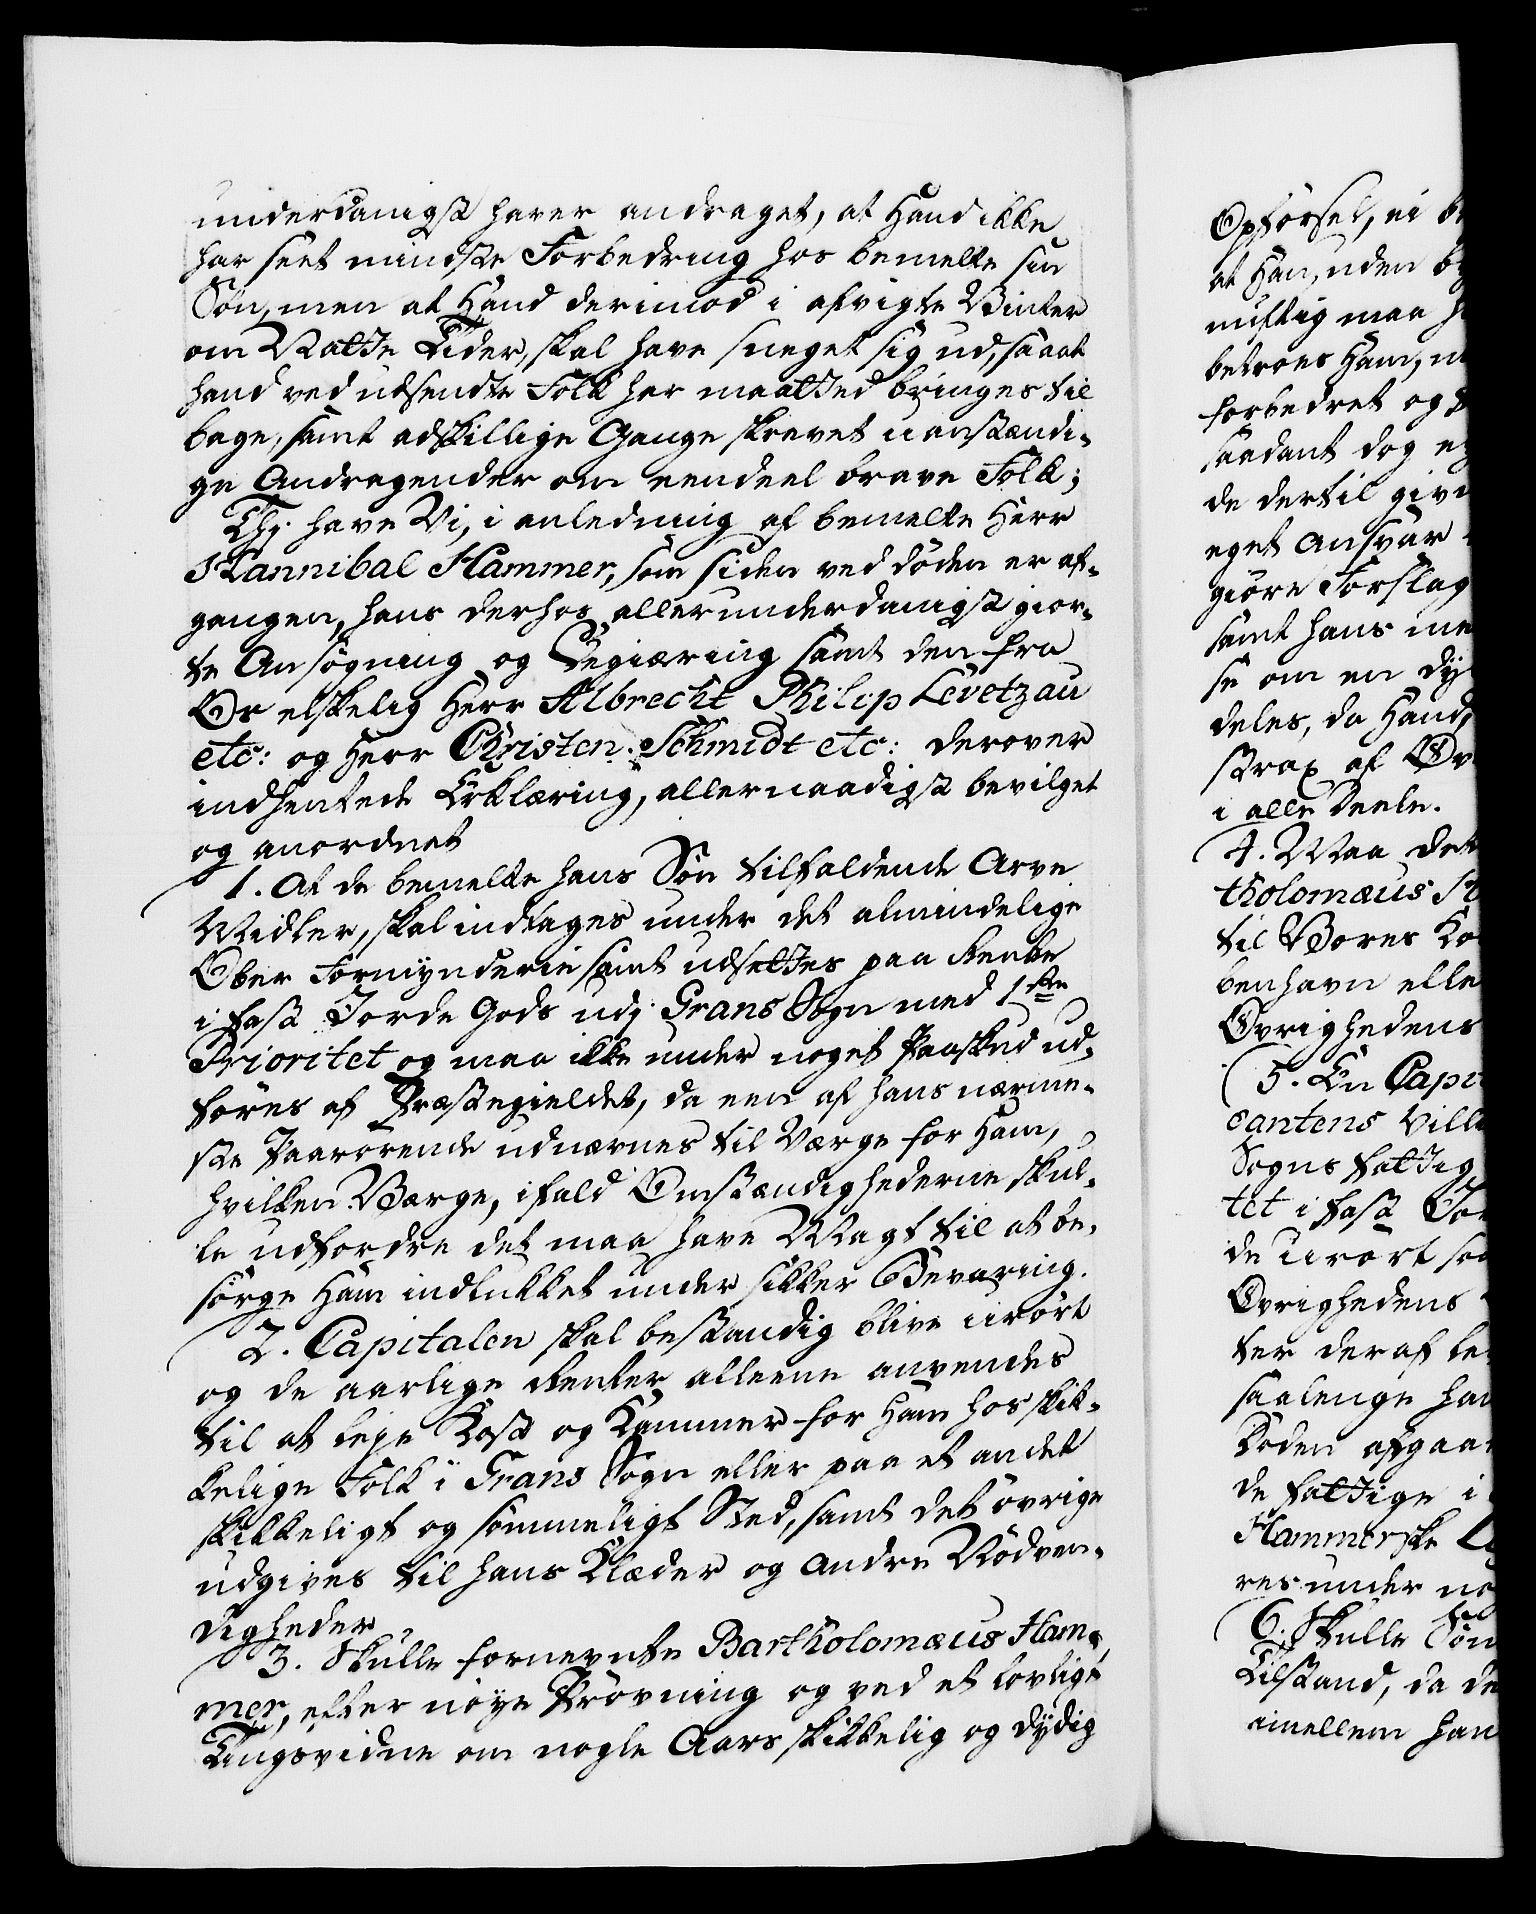 underdanigst haver andraget, at Hand ikke
har seet mindste Forbedring hos bemelte sin
Søn, men at Hand derimod i afvigte Vinter
om Natte Tider, skal have sneget sig ud, saa at
hand ved udsendte Folk har maatted bringes til
bage, samt adskillige Gange skrevet uanstændi-
ge Andragender om eendeel brave Folk;
Thj have Vi, i anledning af bemelte Herr
Hannibal Hammer, som siden ved döden er af-
gangen, hans derhos allerunderdanigst gior-
te Ansögning og Begiæring samt den fra
Os elskelig Herr Albrecht Philip Levetzau
etc: og Herr Christen Schmidt etc: derover
indhentede Erklæring, allernaadigst bevilget
og anordnet
1. At de bemelte hans Søn tilfaldende Arve
Midler, skal indtages under det almindelige
Ober Formynderie samt udsættes paa Rente
i fast Jorde Gods udj Grans Sogn med 1ste
Prioritet og maa ikke under noget Paaskud ud-
føres af Præstegieldet, da een af hans nærme-
ste Paarørende udnævnes til Værge for Ham,
hvilken Værge, ifald Omstændighederne skul-
le udfordre det maa have Magt til at be-
sörge Ham indlukket under sikker Bevaring.
2. Capitalen skal bestandig blive urört
og de aarlige Renter alleene anvendes
til at leje Kost og Kammer for Ham hos skik-
kelige Folk i Grans Sogn eller paa et andet
skikkeligt og sömmeligt Sted, samt det övrige
udgives til hans Klæder og andre Nödven-
digheder
3. Skulle fornevnte Bartholomæus Ham-
mer, efter nöye Prövning og ved et lovligt
Tingsvidne om nogle Aars skikkelig og dydig
Opförsel, ei
at Han, uden
nuftig maa
betroes Ham,
forbedret og
saadant dog
de dertil giv
eget Ansvar
giöre Forslag
samt hans
se om en dy
deles, da Hand,
strax af
i alle Deele.
4. Maa det
tholomæus
til Vores
benhavn elle
Øvrighedens
5. En Capi
cantens Vill
Sogns fattig
tet i fast
de urört
Øvrighedens
ter deraf
saalenge han
Döden afgaa
de fattige i
Hammerske
res under
6. Skulle Sön
Tilstand, da de
imellem han